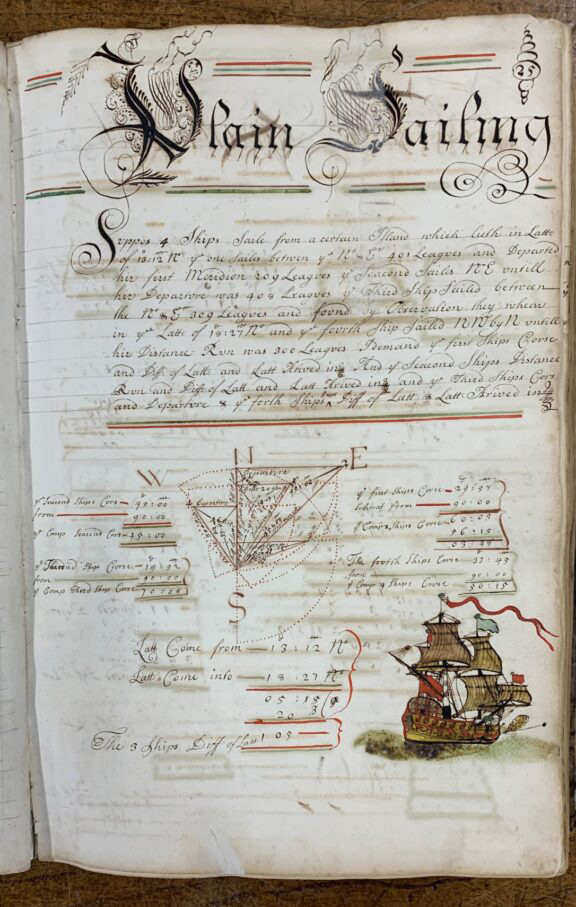 Plain Sailing
25
Suppos 4 Ships Saile from a certain Island which lieth in Latt:
of 13:12 No ye one Sailes betwen ye No & Et 401 Leagues and Departed
hir first Meridion 209 Leagues ye Seacond Sailes N:E untill
hir Departure was 408 Leagues ye Third Ship Sailed between
the No & E 309 Leagues and found by Observation they whear
in ye Latt of 18:27 No and ye fourth Ship Sailed NWbyN untill
hir Distance Run was 300 Leagues Demand ye first Ships Corse
and Diff of Latt: and Latt Arived in And ye Seacond Ships Distance
Run and Diff of Latt and Latt Arived in and ye Third Ships Cors
and Departure & ye forth Ships Diff of Latt & Latt Arived in
N
W
E
S
Departure
Departure
ye Seacond Ships Cors 45:00
from 90:00
ye Comp Seacond Cors 45:00
Ship Corse 19:52
from 90:00
ye Comp Third Ship Corse 70:08
ye first Ships Corse 29:57
Substract from 90:00
ye Comp Ships Corse 60:03
56:15
03:48
The fourth Ships Corse 33:45
from 90:00
ye Comp 4 Ships Corse 56:15
Latt Come from 13:12 No
Latt: Come into 18:27 No
05:15
20 3
The 3 Ships Diff of Latt 105